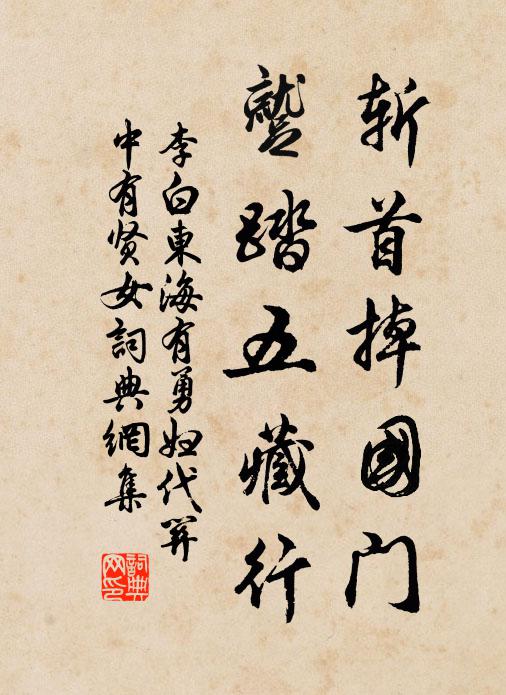 斬首掉國门
蹵踏五藏行
李白東海有勇妇代関
中有贤女詞典網集
詞典
网印